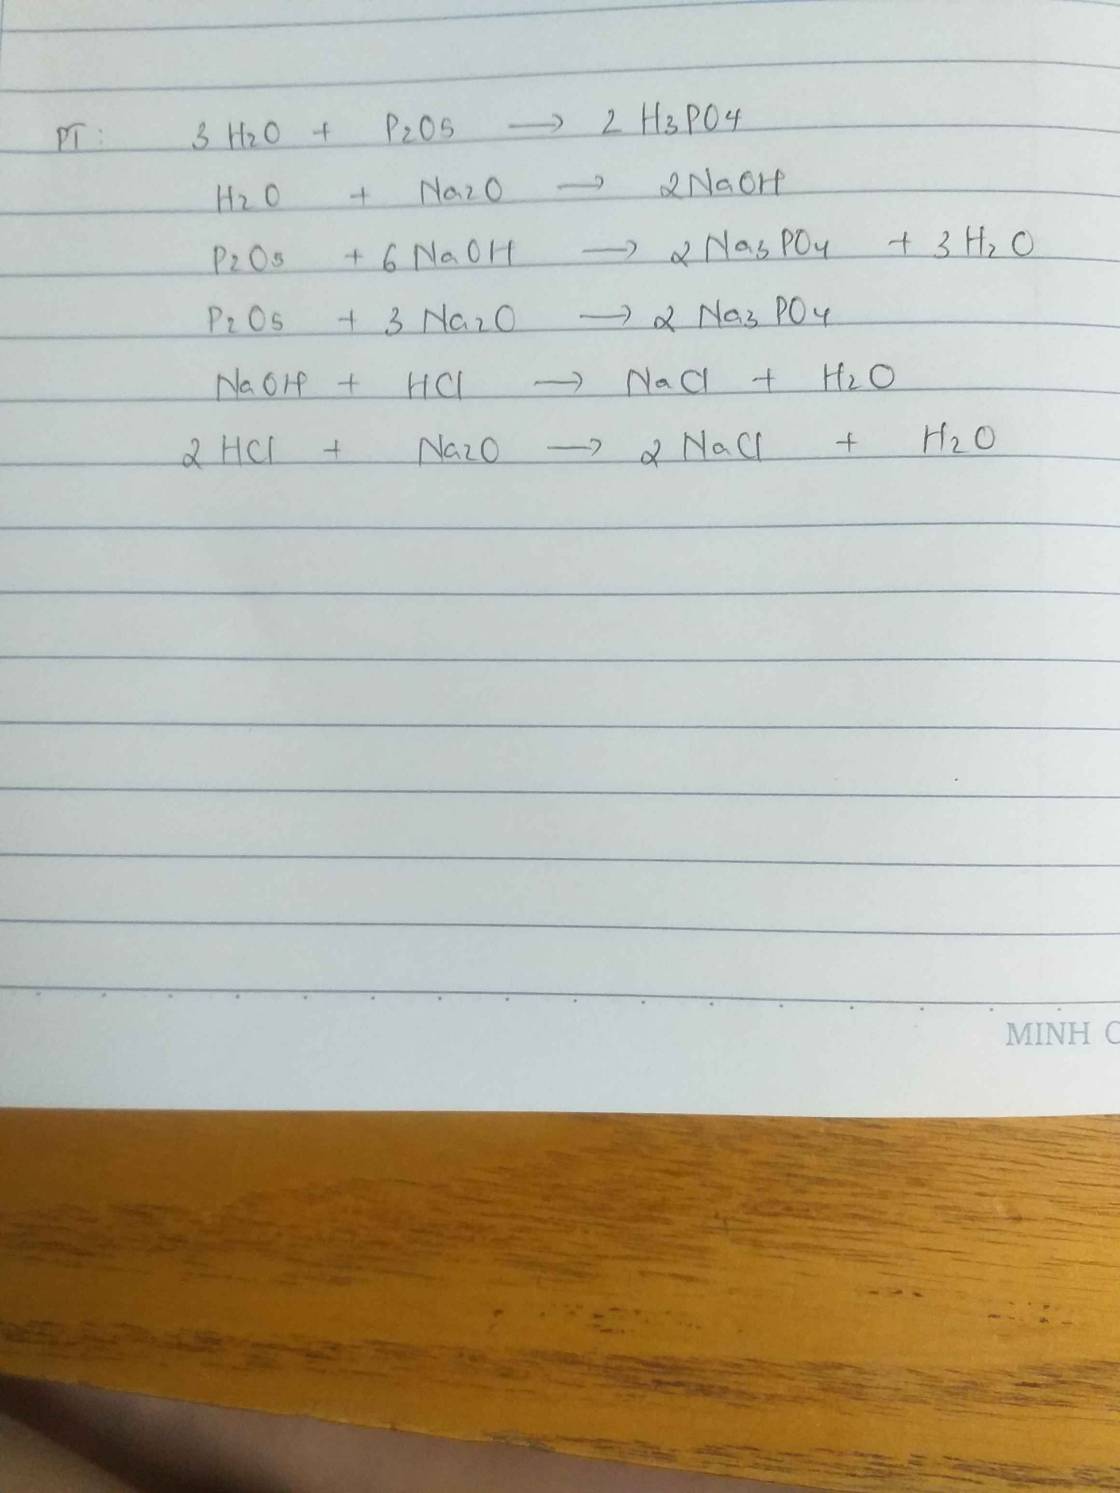 PT: 3 H2O + P2O5 → 2 H3PO4
H2O + Na2O → 2NaOH
P2O5 + 6 NaOH → 2 Na3PO4 + 3 H2O
P2O5 + 3 Na2O → 2 Na3PO4
NaOH + HCl → NaCl + H2O
2 HCl + Na2O → 2 NaCl + H2O
MINH